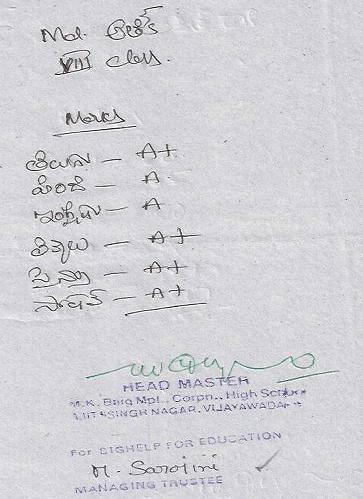 Md. ఆఖిల్
VIII class.
Marks
తెలుగు — A+
హిందీ — A
ఇంగ్లీషు — A
లెక్కలు — A+
సైన్సు — A+
సోషల్ — A+
HEAD MASTER
M.K. Baig Mpl., Corpn., High School
AJIT SINGH NAGAR, VIJAYAWADA-
For BIGHELP FOR EDUCATION
M. Sarojini
MANAGING TRUSTEE